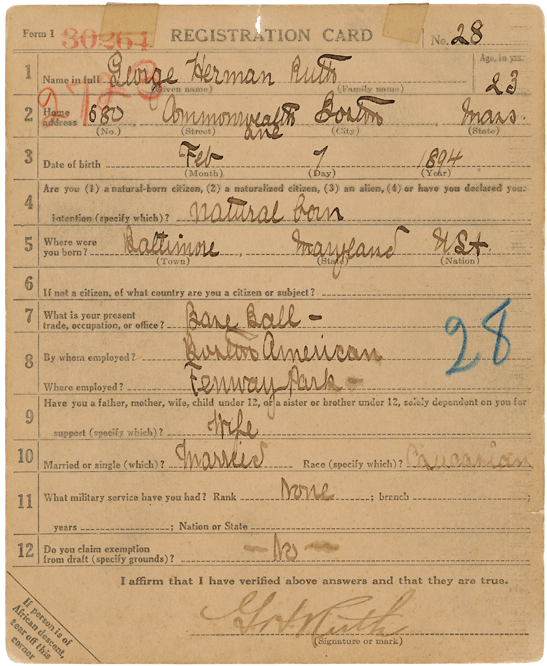 Form 1 30264 REGISTRATION CARD No. 28
1 Name in full George Herman Ruth Age, in yrs. 23
(Given name) (Family name)
2723
2 Home address 680 Commonwealth ave Boston Mass.
(No.) (Street) (City) (State)
3 Date of birth Feb 7 1894
(Month) (Day) (Year)
4 Are you (1) a natural-born citizen, (2) a naturalized citizen, (3) an alien, (4) or have you declared your
intention (specify which)? natural born
5 Where were you born? Baltimore, Maryland USA.
(Town) (State) (Nation)
6 If not a citizen, of what country are you a citizen or subject?
7 What is your present trade, occupation, or office? Base Ball -
28
8 By whom employed? Boston American
Where employed? Fenway Park -
9 Have you a father, mother, wife, child under 12, or a sister or brother under 12, solely dependent on you for
support (specify which)? Wife
10 Married or single (which)? Married Race (specify which)? Caucasian
11 What military service have you had? Rank None ; branch ;
years ; Nation or State
12 Do you claim exemption from draft (specify grounds)? — No —
I affirm that I have verified above answers and that they are true.
G H Ruth
(Signature or mark)
If person is of
African descent,
tear off this
corner